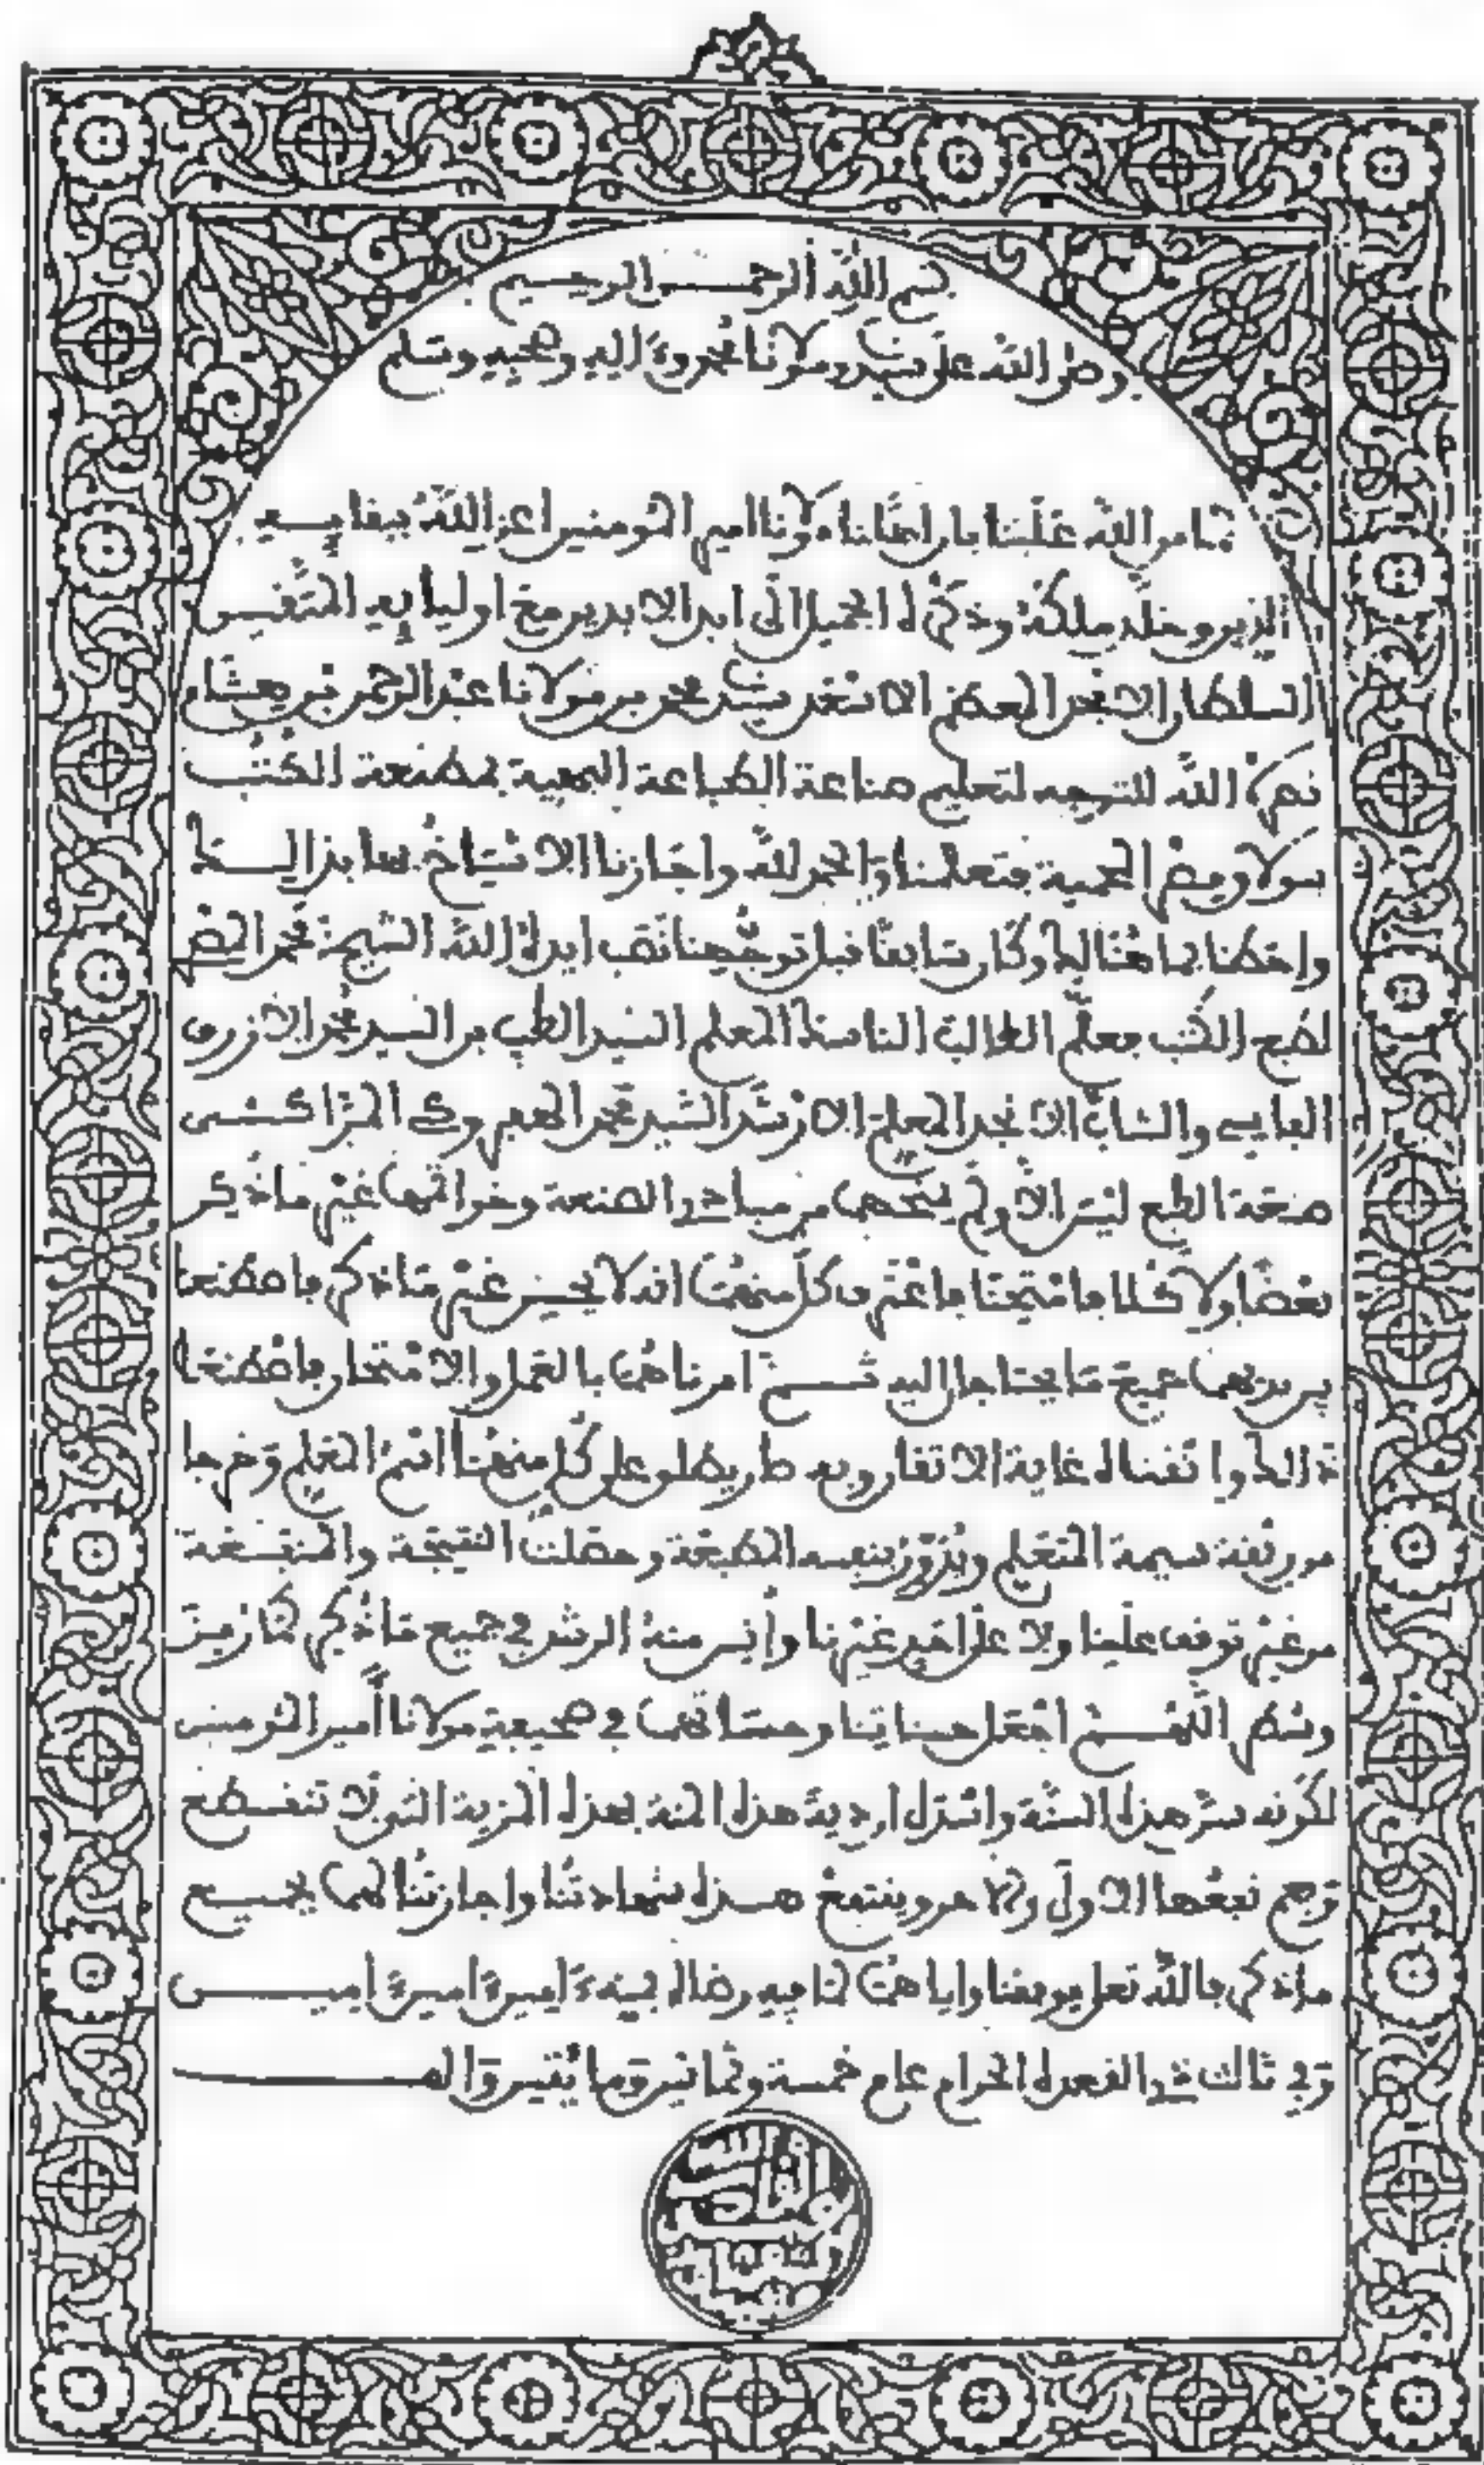 بسم الله الرحمن الرحيم
وصلى الله على سيدنا ومولانا محمد وءاله وصحبه وسلم
لما من الله علينا بان امرنا مولانا امير المومنين اعز الله ببقايه
الدين وخلد ملكه وذكره الجميل الى ابد الابدين مع اوليايه المتقين
السلطان الافخر المعظم الاسعد سيدنا محمد بن مولانا عبد الرحمن بن هشام
نصره الله للتوجه لتعليم صناعة الطباعة البهية بمطبعة الكتب
ببولاق مصر المحمية فتعلمنا والحمد لله واجازنا الاشياخ بها بذالك
واحطنا بما هنالك وكان سابقا قبل توجهنا نصب ايده الله الشيخ محمد المصري
لطبع الكتب فعلم الطالب الناسك المعلم السيد الطيب بن السيد محمد الازرق
الفاسي والشاب الانجد المعلم الارشد السيد محمد الهفروكي المراكشي
صنعة الطبع ليس الا ولم يمنحهما من مبادي الصنعة وخواتمها غير ما ذكر
بعضا ولا كلا فامتحنا فاعترف كل منهما انه لا يحسن غير ما ذكر فاصطنعنا
بين يديهما جميع ما يحتاجان اليه ثم امرناهما بالعمل والامتحان فاصطنعا
ذالك واتقناه غاية الاتقان وبه صار يطلق على كل منهما اسم المعلم وخرجا
من ربقة سيمة المتعلم وبرز بنفسه المطبعة وحصلت النتيجة والمنفعة
من غير توقف علينا ولا على احد غيرنا وأنس منه الرشد في جميع ما ذكر كما زبر
وسطر اللهم اجعل حسناتنا وحسناتهما في صحيفة مولانا أمير المومنين
لكونه سن هذه السنة واسدل اردية هذه المنة بهذه المزية التي لا تنقطع
وعم نفعها الاولى والاخرى وينتفع هذه شهادتنا واجازتنا لهما بجميع
ما ذكر فالله تعلى يوفقنا واياهما لما فيه رضاه بمنه ءامين ءامين ءامين
وفي ثالث ذي القعدة الحرام عام خمسة وثمانين ومايتين والف